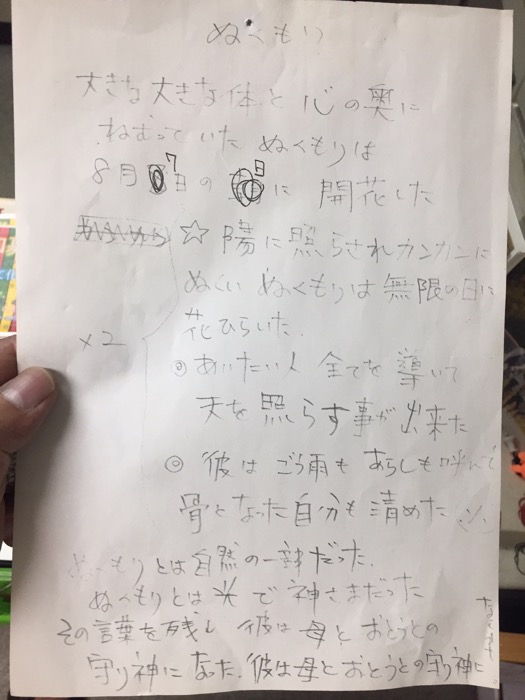 ぬくもり
大きな大きな体と心の奥に
ねむっていた ぬくもりは
8月7日の 日に 開花した
☆ 陽に照らされカンカンに
ぬくい ぬくもりは無限の日に
花ひらいた.
×2
◎ あいたい人 全てを 導いて
天を 照らす事が 出来た
◎ 彼は ごう雨も あらしも呼んで
骨となった自分も 清めた
ぬくもりとは自然の一部だった.
ぬくもりとは 光 で 神さまだった
その言葉を残し 彼は 母と おとうとの
守り神になった. 彼は母と おとうとの守り神に